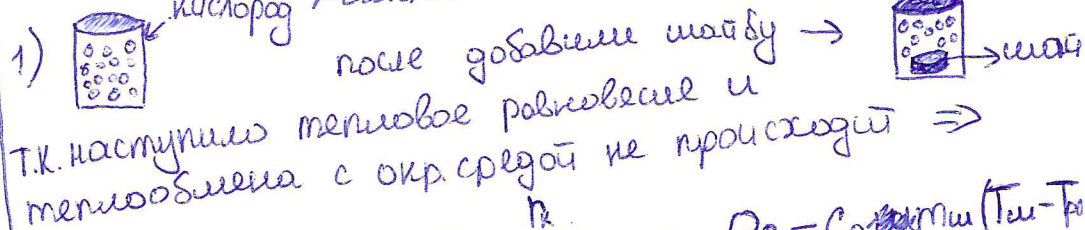 кислород
1) после добавили шайбу → шай
Т.К. наступило тепловое равновесие и
теплообмена с окр. средой не происходит ⇒